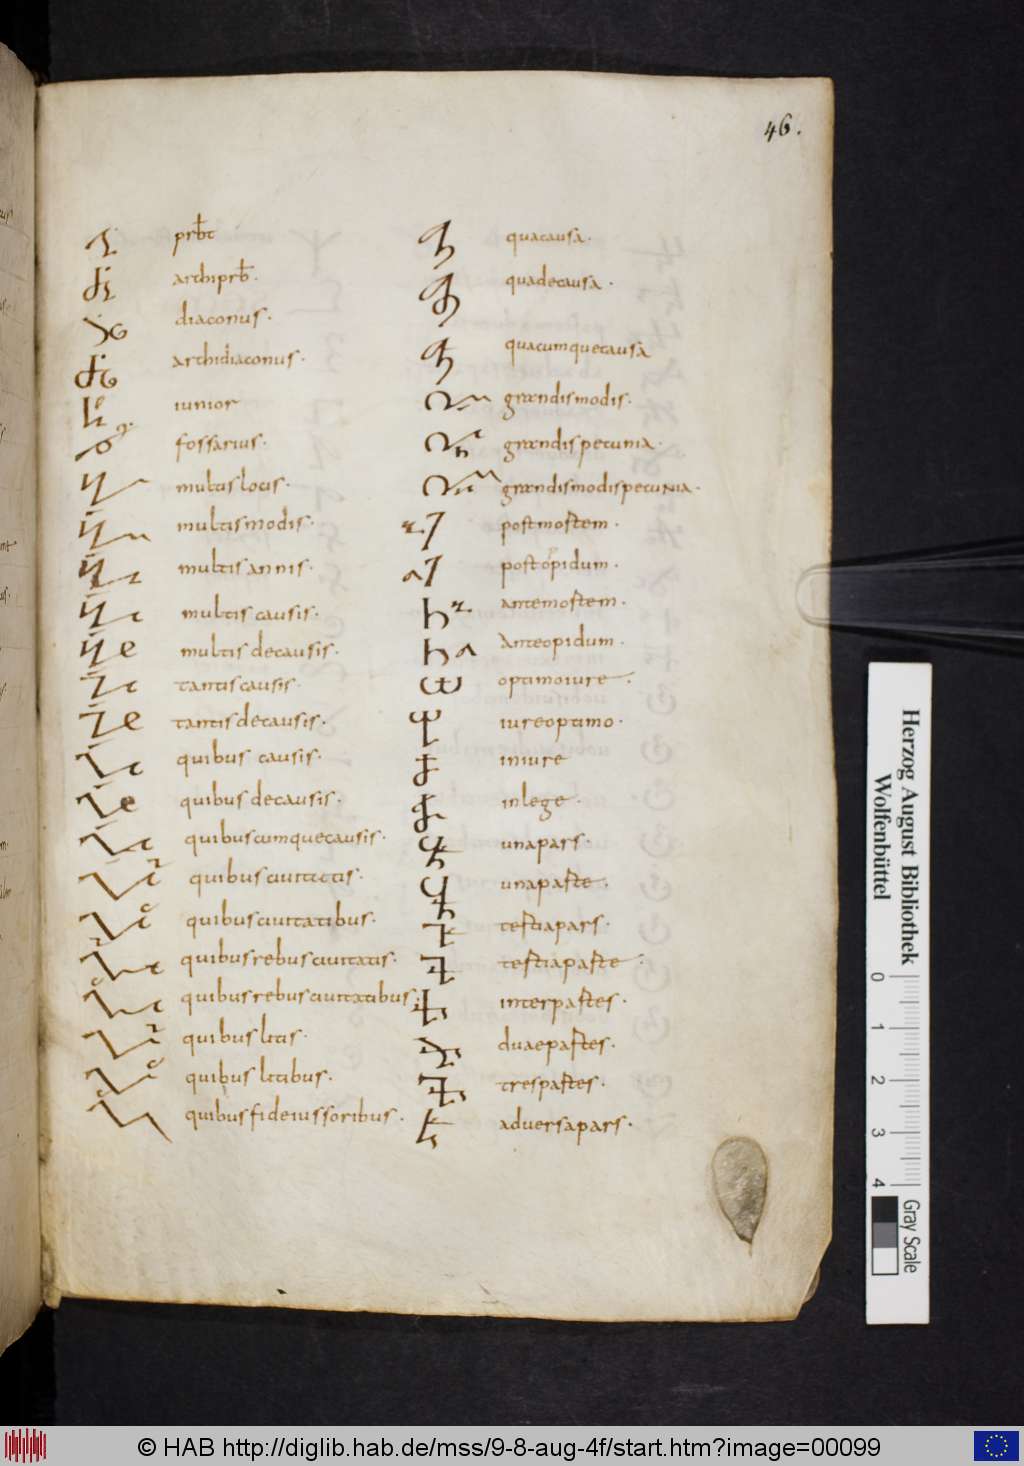 46.
prb̄t
archiprb̄.
diaconus.
archidiaconus.
iunior
fossarius.
multislocis.
multismodis.
multisannis.
multis causis.
multis decausis.
tantiscausis.
tantisdecausis.
quibus causis.
quibus decausis.
quibuscumquecausis.
quibusciuitatis.
quibusciuitatibus.
quibusrebusciuitatis.
quibusrebusciuitatibus.
quibus litis.
quibus litibus.
quibusfideiussoribus.
quacausa.
quadecausa.
quacumquecausa
grandismodis.
grandispecunia.
grandismodispecunia.
postmostem.
postopidum.
antemostem.
Anteopidum.
optimoiure.
iureoptimo.
iniure
inlege.
unapars.
unaparte.
tertiapars.
tertiaparte.
interpartes.
duaepartes.
trespartes.
aduersapars.
Herzog August Bibliothek
Wolfenbüttel
0 1 2 3 4
Gray Scale
© HAB http://diglib.hab.de/mss/9-8-aug-4f/start.htm?image=00099